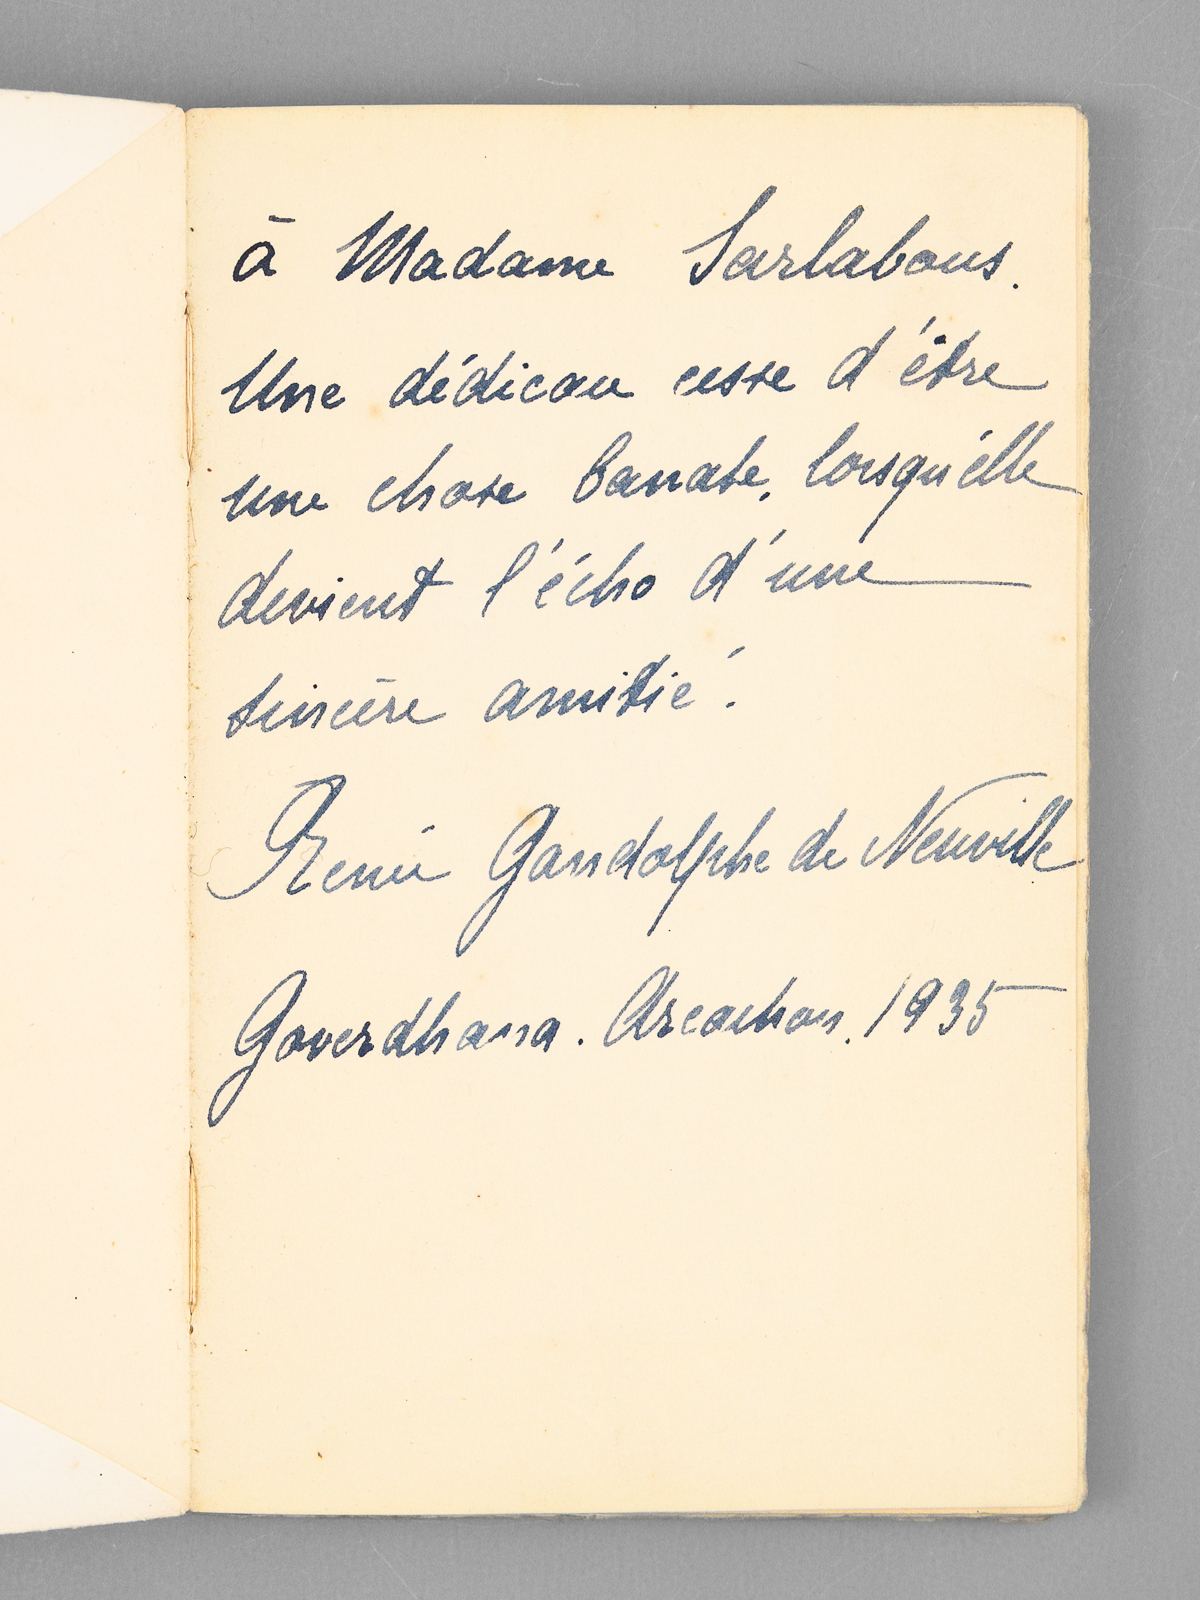 à Madame Sarlabous.
Une dédicace cesse d'être
une chose banale, lorsqu'elle
devient l'écho d'une
sincère amitié.
Renée Gandolphe de Neuville
Goverdhana. Arcachon. 1935